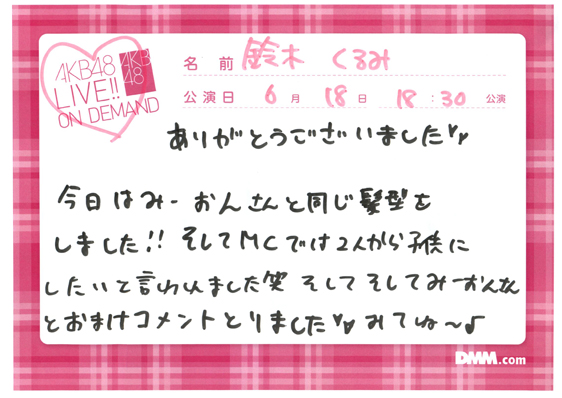 AKB48
LIVE!!
ON DEMAND
AKB
48
名前 鈴木 くるみ
公演日 6月 18日 18:30 公演
ありがとうございました♥♥
今日はみーおんさんと同じ髪型を
しました!! そしてMCでは2人から子供に
したいと言われました笑 そしてそしてみーおんさん
とおまけコメントとりました♥♥ みてね〜♪
DMM.com